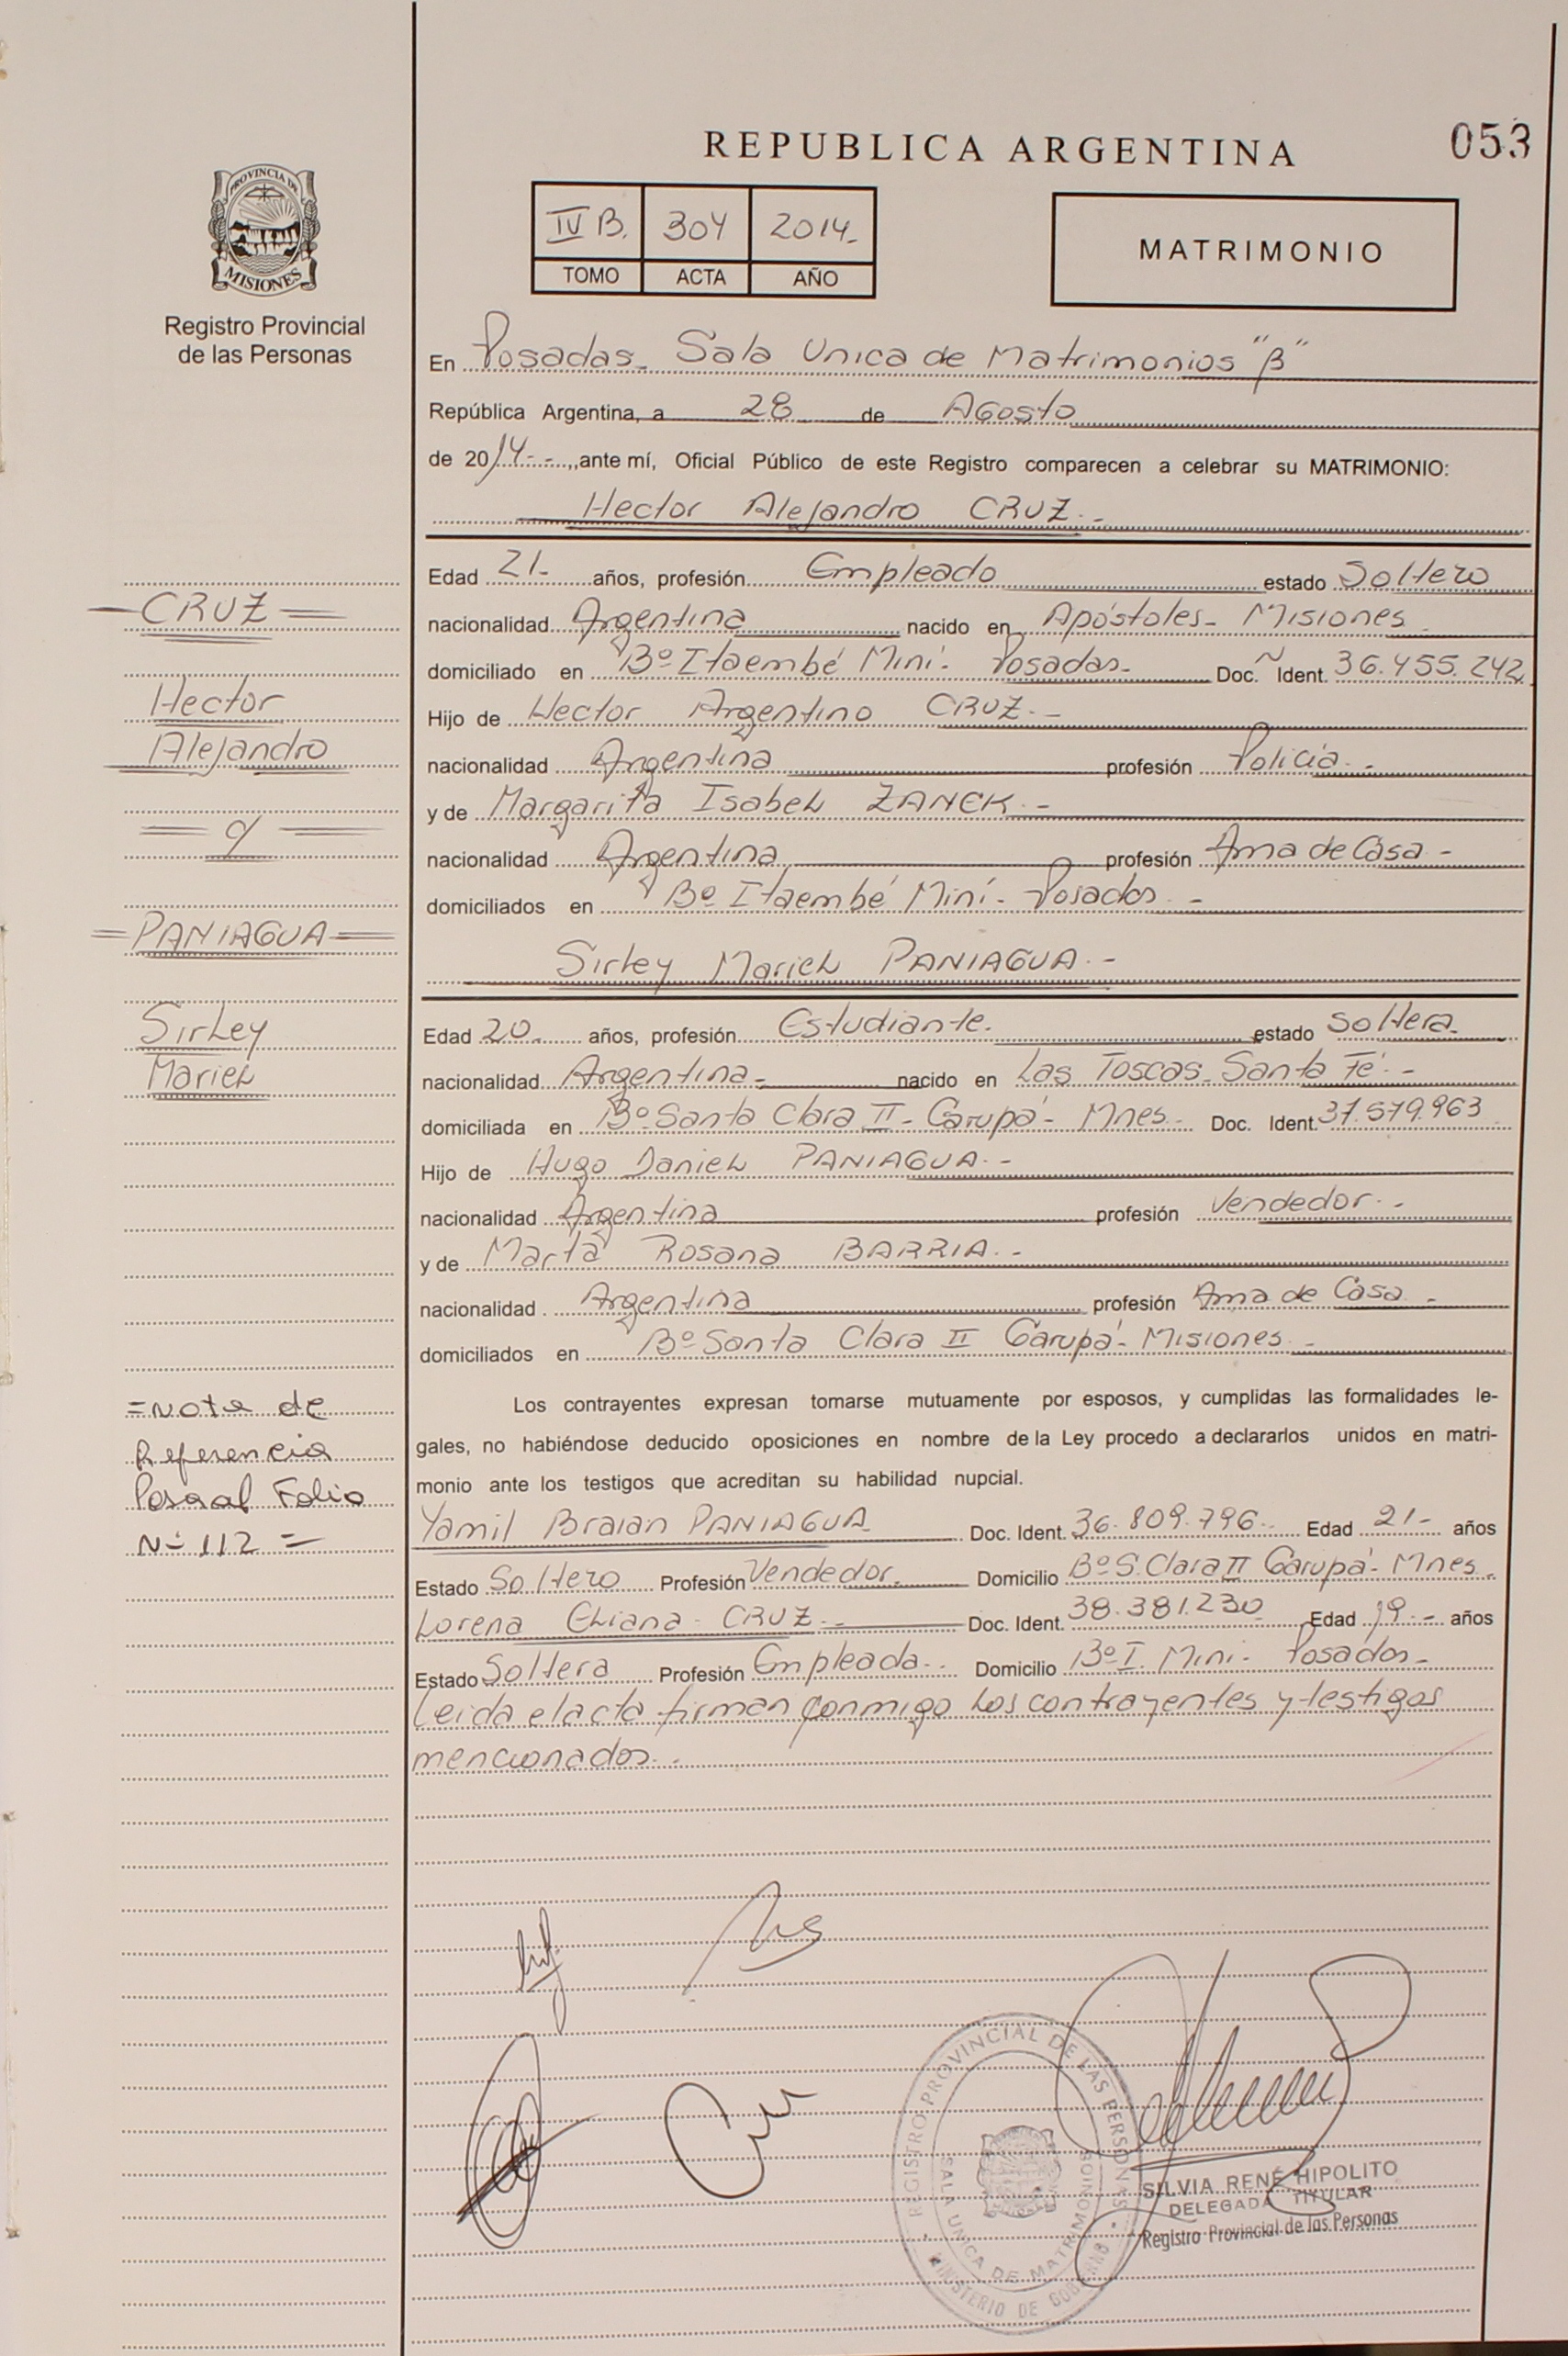 REPUBLICA ARGENTINA
053
PROVINCIA DE
MISIONES
Registro Provincial
de las Personas
IV B. 304 2014.-
TOMO ACTA AÑO
MATRIMONIO
En Posadas- Sala Unica de Matrimonios "B"
República Argentina, a 28 de Agosto
de 2014.- -, ante mí, Oficial Público de este Registro comparecen a celebrar su MATRIMONIO:
Hector Alejandro CRUZ.-
Edad 21- años, profesión Empleado estado Soltero
nacionalidad Argentina nacido en Apóstoles- Misiones
domiciliado en Bº Itaembé Mini- Posadas- Doc. Ident. 36.455.242
Hijo de Hector Argentino CRUZ.-
nacionalidad Argentina profesión Policía.-
y de Margarita Isabel ZANEK.-
nacionalidad Argentina profesión Ama de Casa-
domiciliados en Bº Itaembé Miní- Posadas.-
Sirley Mariel PANIAGUA.-
Edad 20.- años, profesión Estudiante. estado Soltera-
nacionalidad Argentina- nacido en Las Toscas- Santa Fé.-
domiciliada en Bº Santa Clara II- Garupá- Mnes- Doc. Ident. 37.579.963
Hijo de Hugo Daniel PANIAGUA.-
nacionalidad Argentina profesión Vendedor.-
y de Marta Rosana BARRIA.-
nacionalidad Argentina profesión Ama de Casa.-
domiciliados en Bº Santa Clara II Garupá- Misiones.-
Los contrayentes expresan tomarse mutuamente por esposos, y cumplidas las formalidades le-
gales, no habiéndose deducido oposiciones en nombre de la Ley procedo a declararlos unidos en matri-
monio ante los testigos que acreditan su habilidad nupcial.
Yamil Braian PANIAGUA Doc. Ident. 36.809.796.- Edad 21- años
Estado Soltero Profesión Vendedor. Domicilio Bº S. Clara II Garupá- Mnes.
Lorena Eliana CRUZ.- Doc. Ident. 38.381.230 Edad 19.- años
Estado Soltera Profesión Empleada.- Domicilio Bº I. Mini- Posadas-
Leida el acta firman conmigo los contrayentes y testigos
mencionados.-
CRUZ
Hector
Alejandro
y
PANIAGUA
Sirley
Mariel
=Nota de
Referencia
Pasa al Folio
Nº 112 =
REGISTRO PROVINCIAL DE LAS PERSONAS
SALA UNICA DE MATRIMONIOS
MINISTERIO DE GOBIERNO
SILVIA RENÉ HIPOLITO
DELEGADA TITULAR
Registro Provincial de las Personas